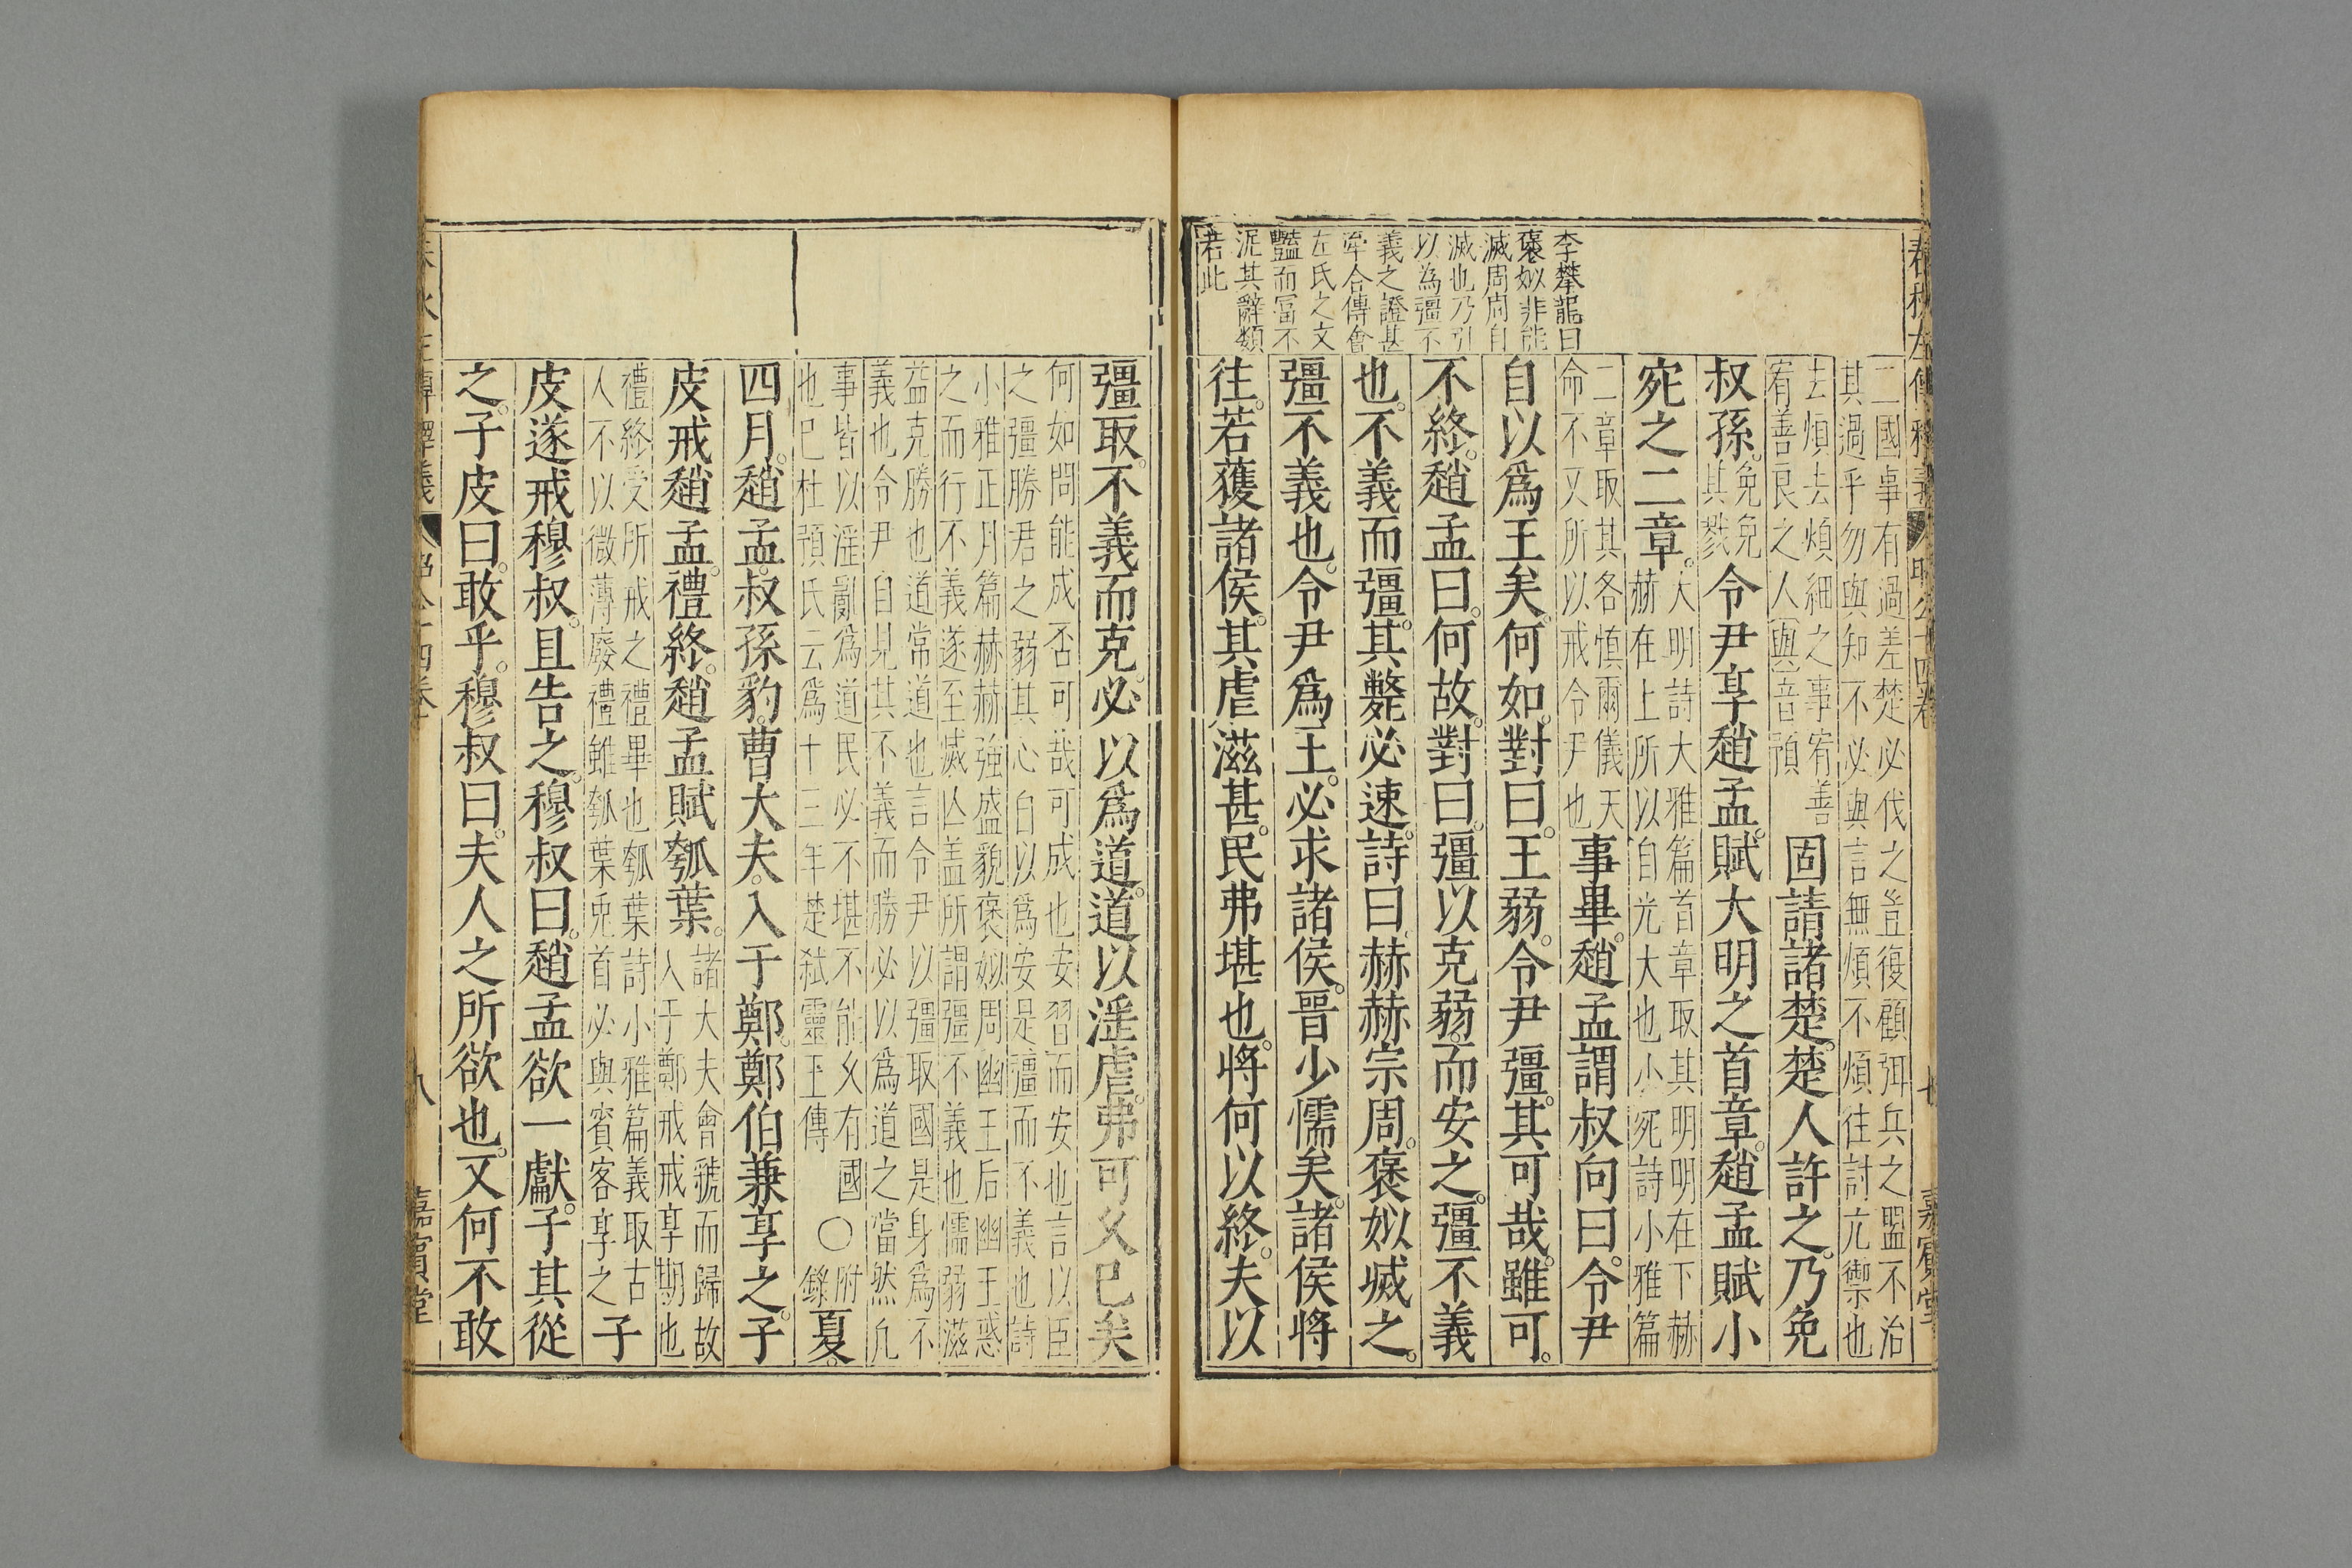 二國事有過差楚必伐之豈復顧弭兵之盟不治
其過乎勿與知不必與言無煩不煩往討亢禦也
去煩去煩細之事宥善
宥善良之人與音預
固請諸楚楚人許之乃免
叔孫
免免
其戮
令尹享趙孟賦大明之首章趙孟賦小
宛之二章
大明詩大雅篇首章取其明明在下赫
赫在上所以自光大也小宛詩小雅篇
二章取其各慎爾儀天
命不又所以戒令尹也
事畢趙孟謂叔向曰令尹
自以爲王矣何如對曰王弱令尹彊其可哉雖可
不終趙孟曰何故對曰彊以克弱而安之彊不義
也不義而彊其斃必速詩曰赫赫宗周褒姒烕之
彊不義也令尹爲王必求諸侯晉少懦矣諸侯將
往若獲諸侯其虐滋甚民弗堪也將何以終夫以
李攀龍曰
褒姒非能
滅周周自
滅也乃引
以為彊不
義之證甚
牽合傳會
左氏之文
豔而冨不
泥其辭類
若此
彊取不義而克必以爲道道以淫虐弗可乆已矣
何如問能成否可哉可成也安習而安也言以臣
之彊勝君之弱其心自以爲安是彊而不義也詩
小雅正月篇赫赫強盛貌褒姒周幽王后幽王惑
之而行不義遂至滅亾蓋所謂彊不義也懦弱滋
益克勝也道常道也言令尹以彊取國是身爲不
義也令尹自見其不義而勝必以爲道之當然凢
事皆以淫亂爲道民必不堪不能乆有國
也巳杜預氏云爲十三年楚弑靈王傳
〇
附
錄
夏
四月趙孟叔孫豹曹大夫入于鄭鄭伯兼享之子
皮戒趙孟禮終趙孟賦瓠葉
諸大夫會虢而歸故
入于鄭戒戒享期也
禮終受所戒之禮畢也瓠葉詩小雅篇義取古
人不以微薄廢禮雖瓠葉兎首必與賓客享之
子
皮遂戒穆叔且告之穆叔曰趙孟欲一獻子其從
之子皮曰敢乎穆叔曰夫人之所欲也又何不敢
八
嘉賓堂